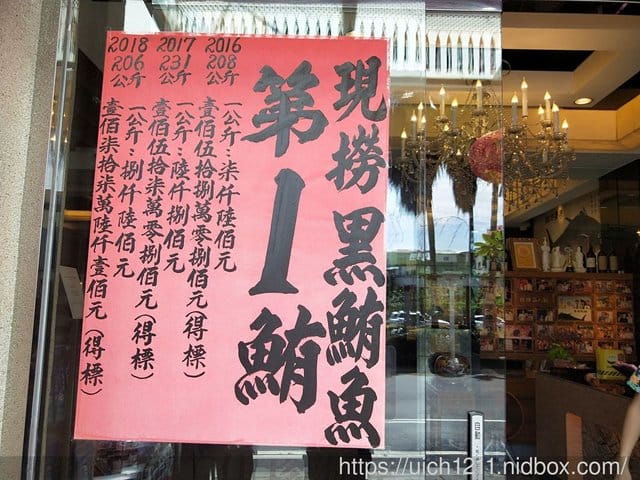 現撈黑鮪魚
第1鮪
2016
208
公斤
一公斤:柒仟陸佰元
壹佰伍拾捌萬零捌佰元(得標)
2017
231
公斤
一公斤:陸仟捌佰元
壹佰伍拾柒萬零捌佰元(得標)
2018
206
公斤
一公斤:捌仟陸佰元
壹佰柒拾柒萬陸仟壹佰元(得標)
自動
https://uich12_1.nidbox.com/